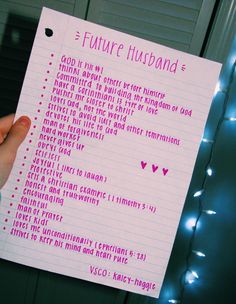 Future Husband
GOD is his #1
thinks about others before himself
committed to building the kingdom of God
have a Christians is 4ver or love
pushes me closer to christ
loves God, not the world
strives to avoid lust and other temptations
devotes his life to God
man of forgiveness
hard worker
never gives up
obeys God
selfless
joyful (likes to laugh)
protective
be a christian example (1 timothy 3:4)
honest and trustworthy
hardworking
faithful
man of prayer
loves kids
loves me unconditionally (ephesians 5:28)
strives to keep his mind and heart pure
VSCO: kaley-hoggle